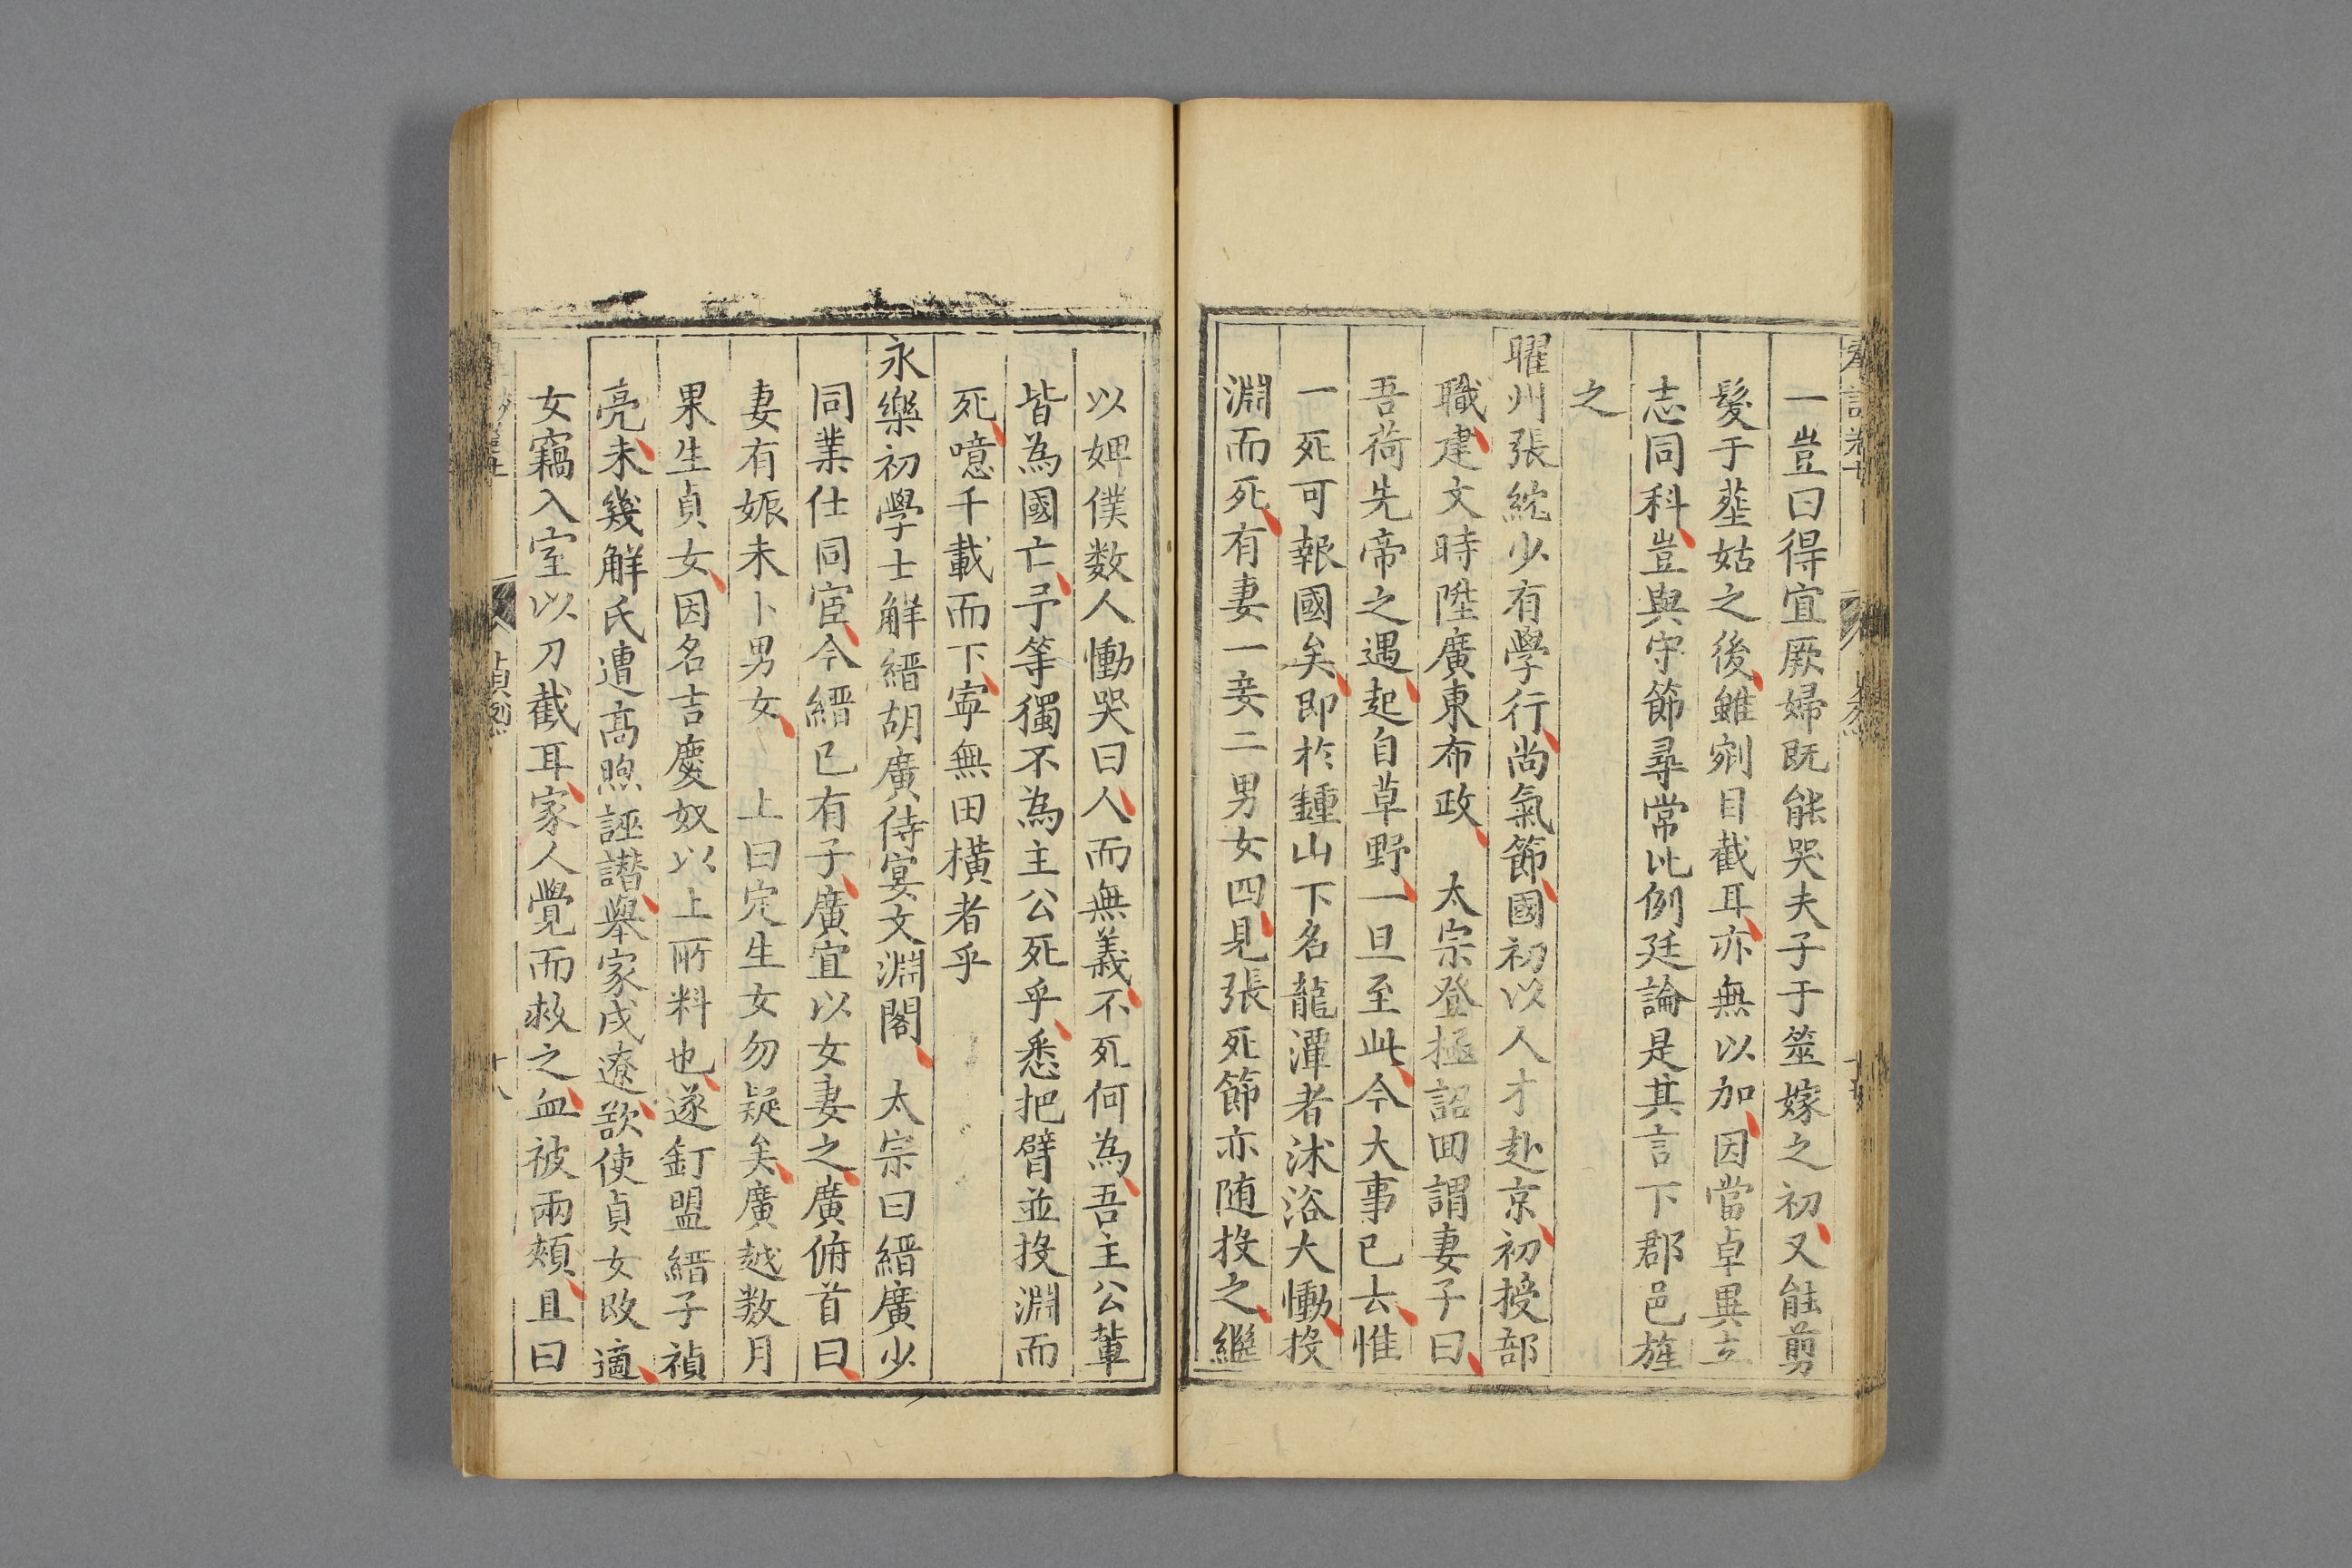 一豈曰得宜厥婦既能哭夫子于筮嫁之初又能剪
髮于塟姑之後雖剜目截耳亦無以加因當卓異立
志同科豈與守節尋常比例廷論是其言下郡邑旌
之
曜州張紞少有學行尚氣節國初以人才赴京初授部
職建文時陞廣東布政　太宗登極詔回謂妻子曰
吾荷先帝之遇起自草野一旦至此今大事已去惟
一死可報國矣即於鍾山下名龍潭者沐浴大慟投
淵而死有妻一妾二男女四見張死節亦随投之繼
以婢僕数人慟哭曰人而無義不死何為吾主公輩
皆為國亡予等獨不為主公死乎悉把臂並投淵而
死噫千載而下寧無田橫者乎
永樂初學士觧縉胡廣侍宴文淵閣　太宗曰縉廣少
同業仕同宦今縉已有子廣宜以女妻之廣俯首曰
妻有娠未卜男女　上曰定生女勿疑矣廣越数月
果生貞女因名吉慶奴以上所料也遂釘盟縉子禎
亮未幾觧氏遭高煦誣譖舉家戍遼欲使貞女改適
女竊入室以刀截耳家人覺而救之血被兩頰且曰
貞烈
十八